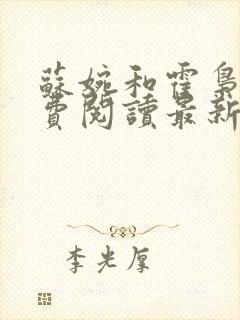 蘇婉和霍梟
費閱讀最新
李光厚